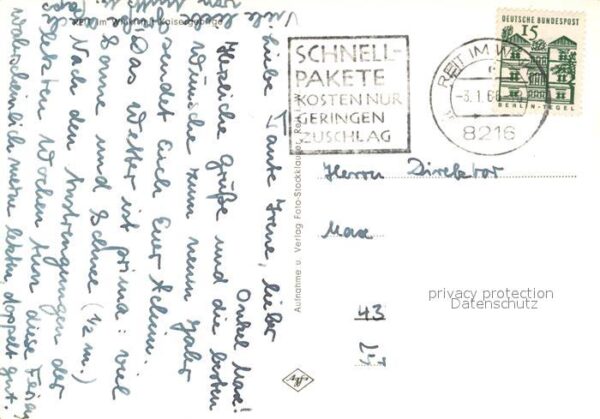 REIT im Winkl / Kaisergebirge
Liebe Tante Irene, lieber
Onkel Max!
Herzliche Grüße und die besten
Wünsche zum neuen Jahr
sendet Euch Euer Achim.
Das Wetter ist prima: viel
Sonne und Schnee (1/2 m.)
Nach den Anstrengungen der
letzten Wochen tun diese
wahrscheinlich meine letzten, doppelt gut.
Viele
Aufnahme u. Verlag Foto-Stocklauser, Reit i. W.
SCHNELL-
PAKETE
KOSTEN NUR
GERINGEN
ZUSCHLAG
REIT IM W
-3.1.6
8216
DEUTSCHE BUNDESPOST
15
BERLIN-TEGEL
Herrn Direktor
Max
43
privacy protection
Datenschutz